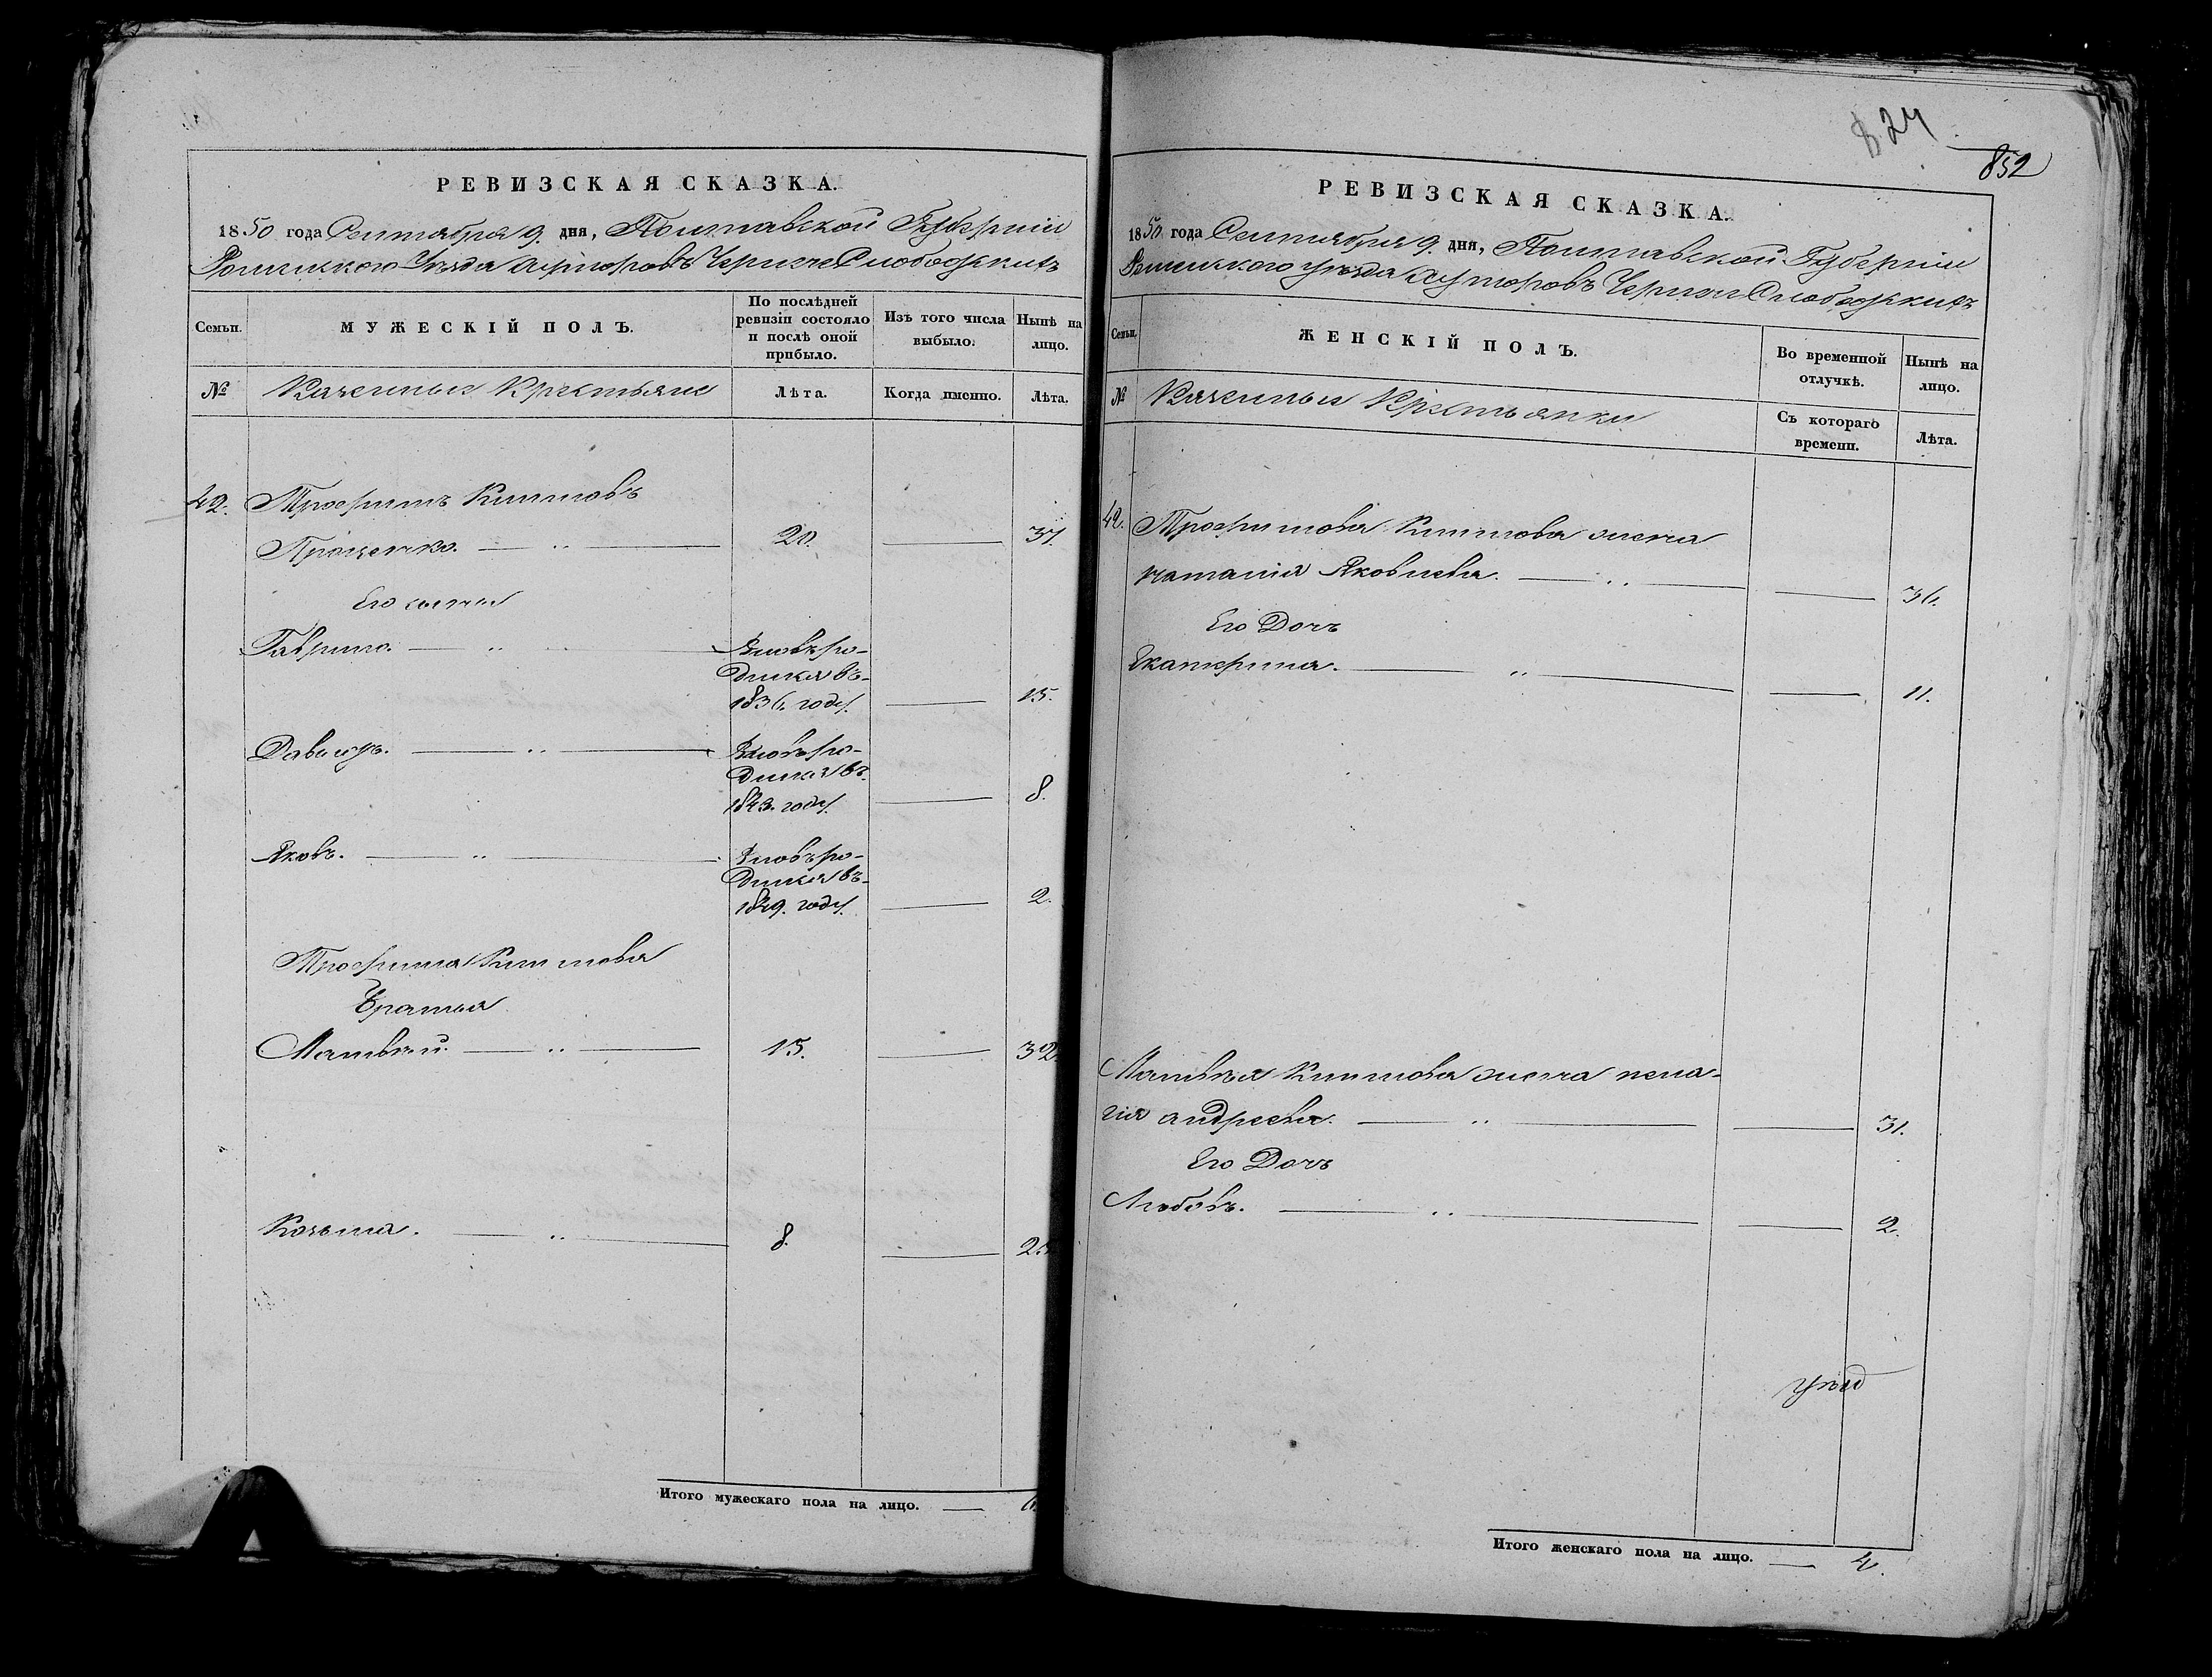 РЕВИЗСКАЯ СКАЗКА.
1850 года Сентября 9. дня, Полтавской Губерніи
Роменского Уезда хуторовъ Черчче Слободскихъ
Семьи.
МУЖЕСКІЙ ПОЛЪ.
По послѣдней
ревизіи состояло
и послѣ оной
прибыло.
Изъ того числа
выбыло.
Нынѣ на
лицо.
№
Казенныи Крестьяни
Лѣта.
Когда именно.
Лѣта.
42. Трофимъ Климовъ
Проценко. 20. 37.
Его сыны
Гаврило. Вновь ро-
дился въ
1836. году. 15.
Давидъ. Вновь ро-
дился въ
1843. году. 8.
Яковъ. Вновь ро-
дился въ
1849. году. 2.
Трофима Климова
братья
Матвѣй. 15. 32.
Козьма. 8. 25
Итого мужескаго пола на лицо. 6.
824
852
РЕВИЗСКАЯ СКАЗКА.
1850 года Сентября 9. дня, Полтавской Губерніи
Роменского уезда хуторовъ Слободскихъ
Семьи.
ЖЕНСКІЙ ПОЛЪ.
Во временной
отлучкѣ.
Нынѣ на
лицо.
№
Казенныи Крестьянки
Съ котораго
времени.
Лѣта.
42. Трофимова Климова жена
наталия Яковлева. 36.
Его Дочь
Екатерина. 11.
Матвѣя Климова жена пела-
гия андреева. 31.
Его Дочь
Любовь. 2.
Итого женскаго пола на лицо. 4.